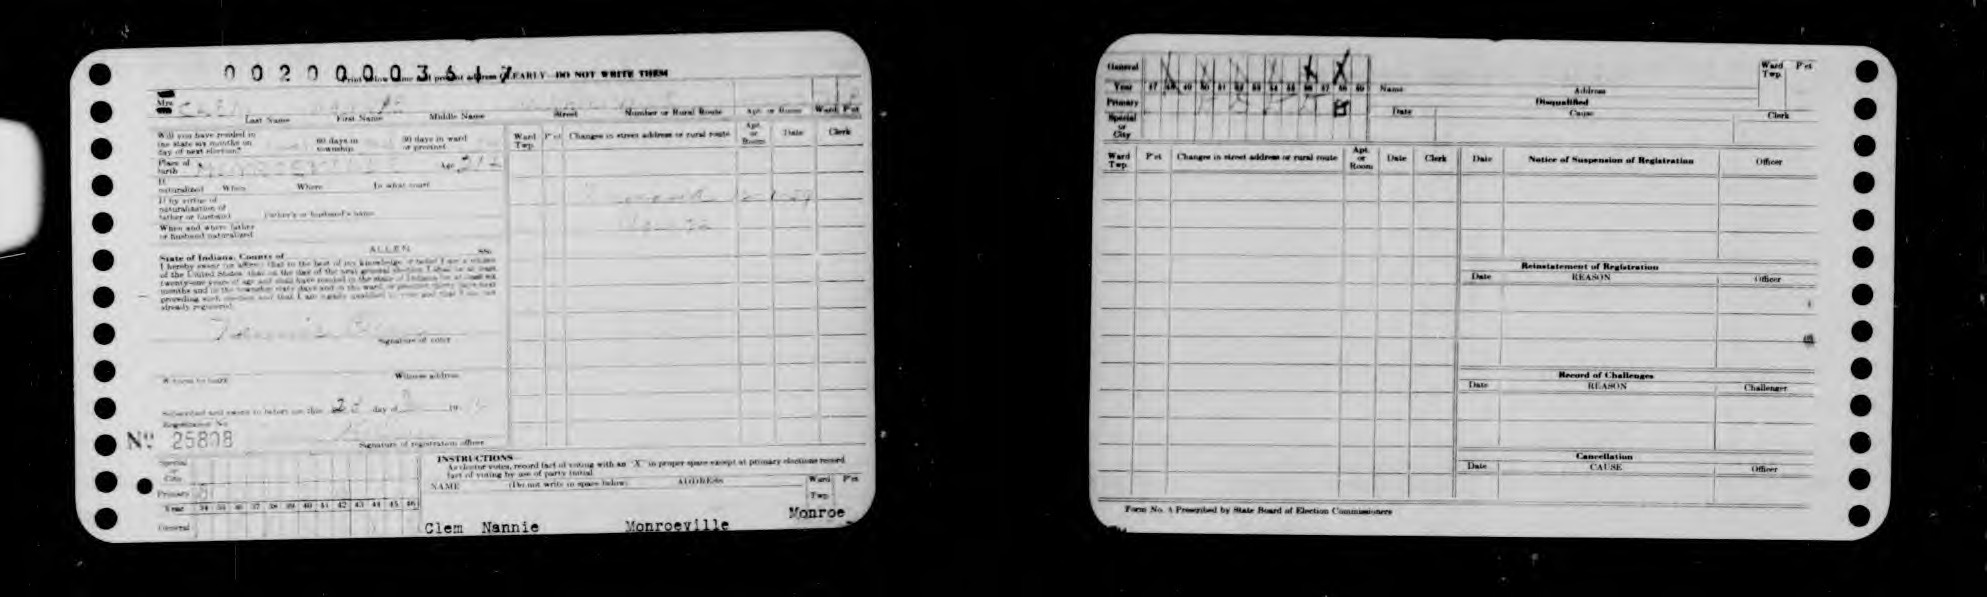 0020000361
Print below name and present address CLEARLY—DO NOT WRITE THEM
Mrs
Last Name First Name Middle Name Street Number or Rural Route Apt. or Room Ward P'ct
Will you have resided in the state six months on day of next election? 60 days in township 30 days in ward or precinct
Ward Twp. P'ct Changes in street address or rural route Apt. or Room Date Clerk
Place of birth Age
If naturalized When Where In what court
If by virtue of naturalization of father or husband Father's or husband's name
When and where father or husband naturalized
State of Indiana, County of ALLEN SS:
I hereby swear (or affirm) that to the best of my knowledge & belief I am a citizen
of the United States, that on the day of the next general election I shall be at least
twenty-one years of age and shall have resided in the state of Indiana for at least six
months and in the township sixty days and in the ward or precinct thirty days next
preceding such election and that I am legally qualified to vote and that I am not
already registered.
Nannie Clem
Signature of voter
Witness to mark Witness address
Subscribed and sworn to before me this day of 19
Registration No.
No 25808
Signature of registration officer
Special or City
Primary
Year 34 35 36 37 38 39 40 41 42 43 44 45 46
General
INSTRUCTIONS—
As elector votes, record fact of voting with an "X" in proper space except at primary elections record
fact of voting by use of party initial.
NAME (Do not write in space below) ADDRESS Ward Twp. P'ct
Clem Nannie Monroeville Monroe
General
Year 47 48 49 50 51 52 53 54 55 56 57 58 59
Primary
Special or City
Name Address Ward Twp. P'ct
Disqualified
Date Cause Clerk
Ward Twp. P'ct Changes in street address or rural route Apt. or Room Date Clerk
Date Notice of Suspension of Registration Officer
Reinstatement of Registration
Date REASON Officer
Record of Challenges
Date REASON Challenger
Cancellation
Date CAUSE Officer
Form No. 4 Prescribed by State Board of Election Commissioners